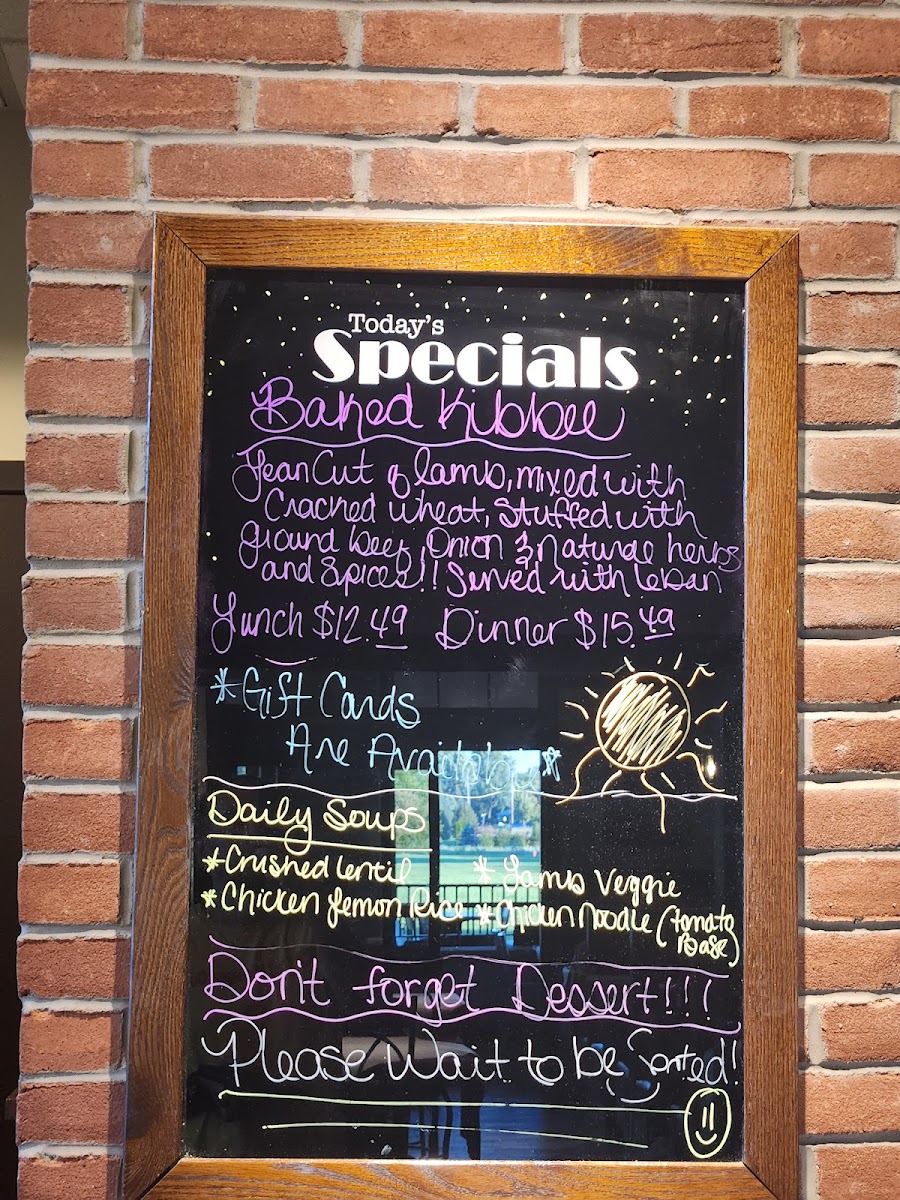 Today's
Specials
Baked Kibbee
Lean Cut of lamb, mixed with
Cracked wheat, Stuffed with
ground beef, Onion & nature herbs
and Spices!! Served with leban
Lunch $12.49 Dinner $15.49
*Gift Cards
Are Available*
Daily Soups
*Crushed lentil *Lamb Veggie
*Chicken lemon Rice *Chicken Noodle (tomato
Base)
Don't forget Dessert!!!
Please Wait to be Seated!